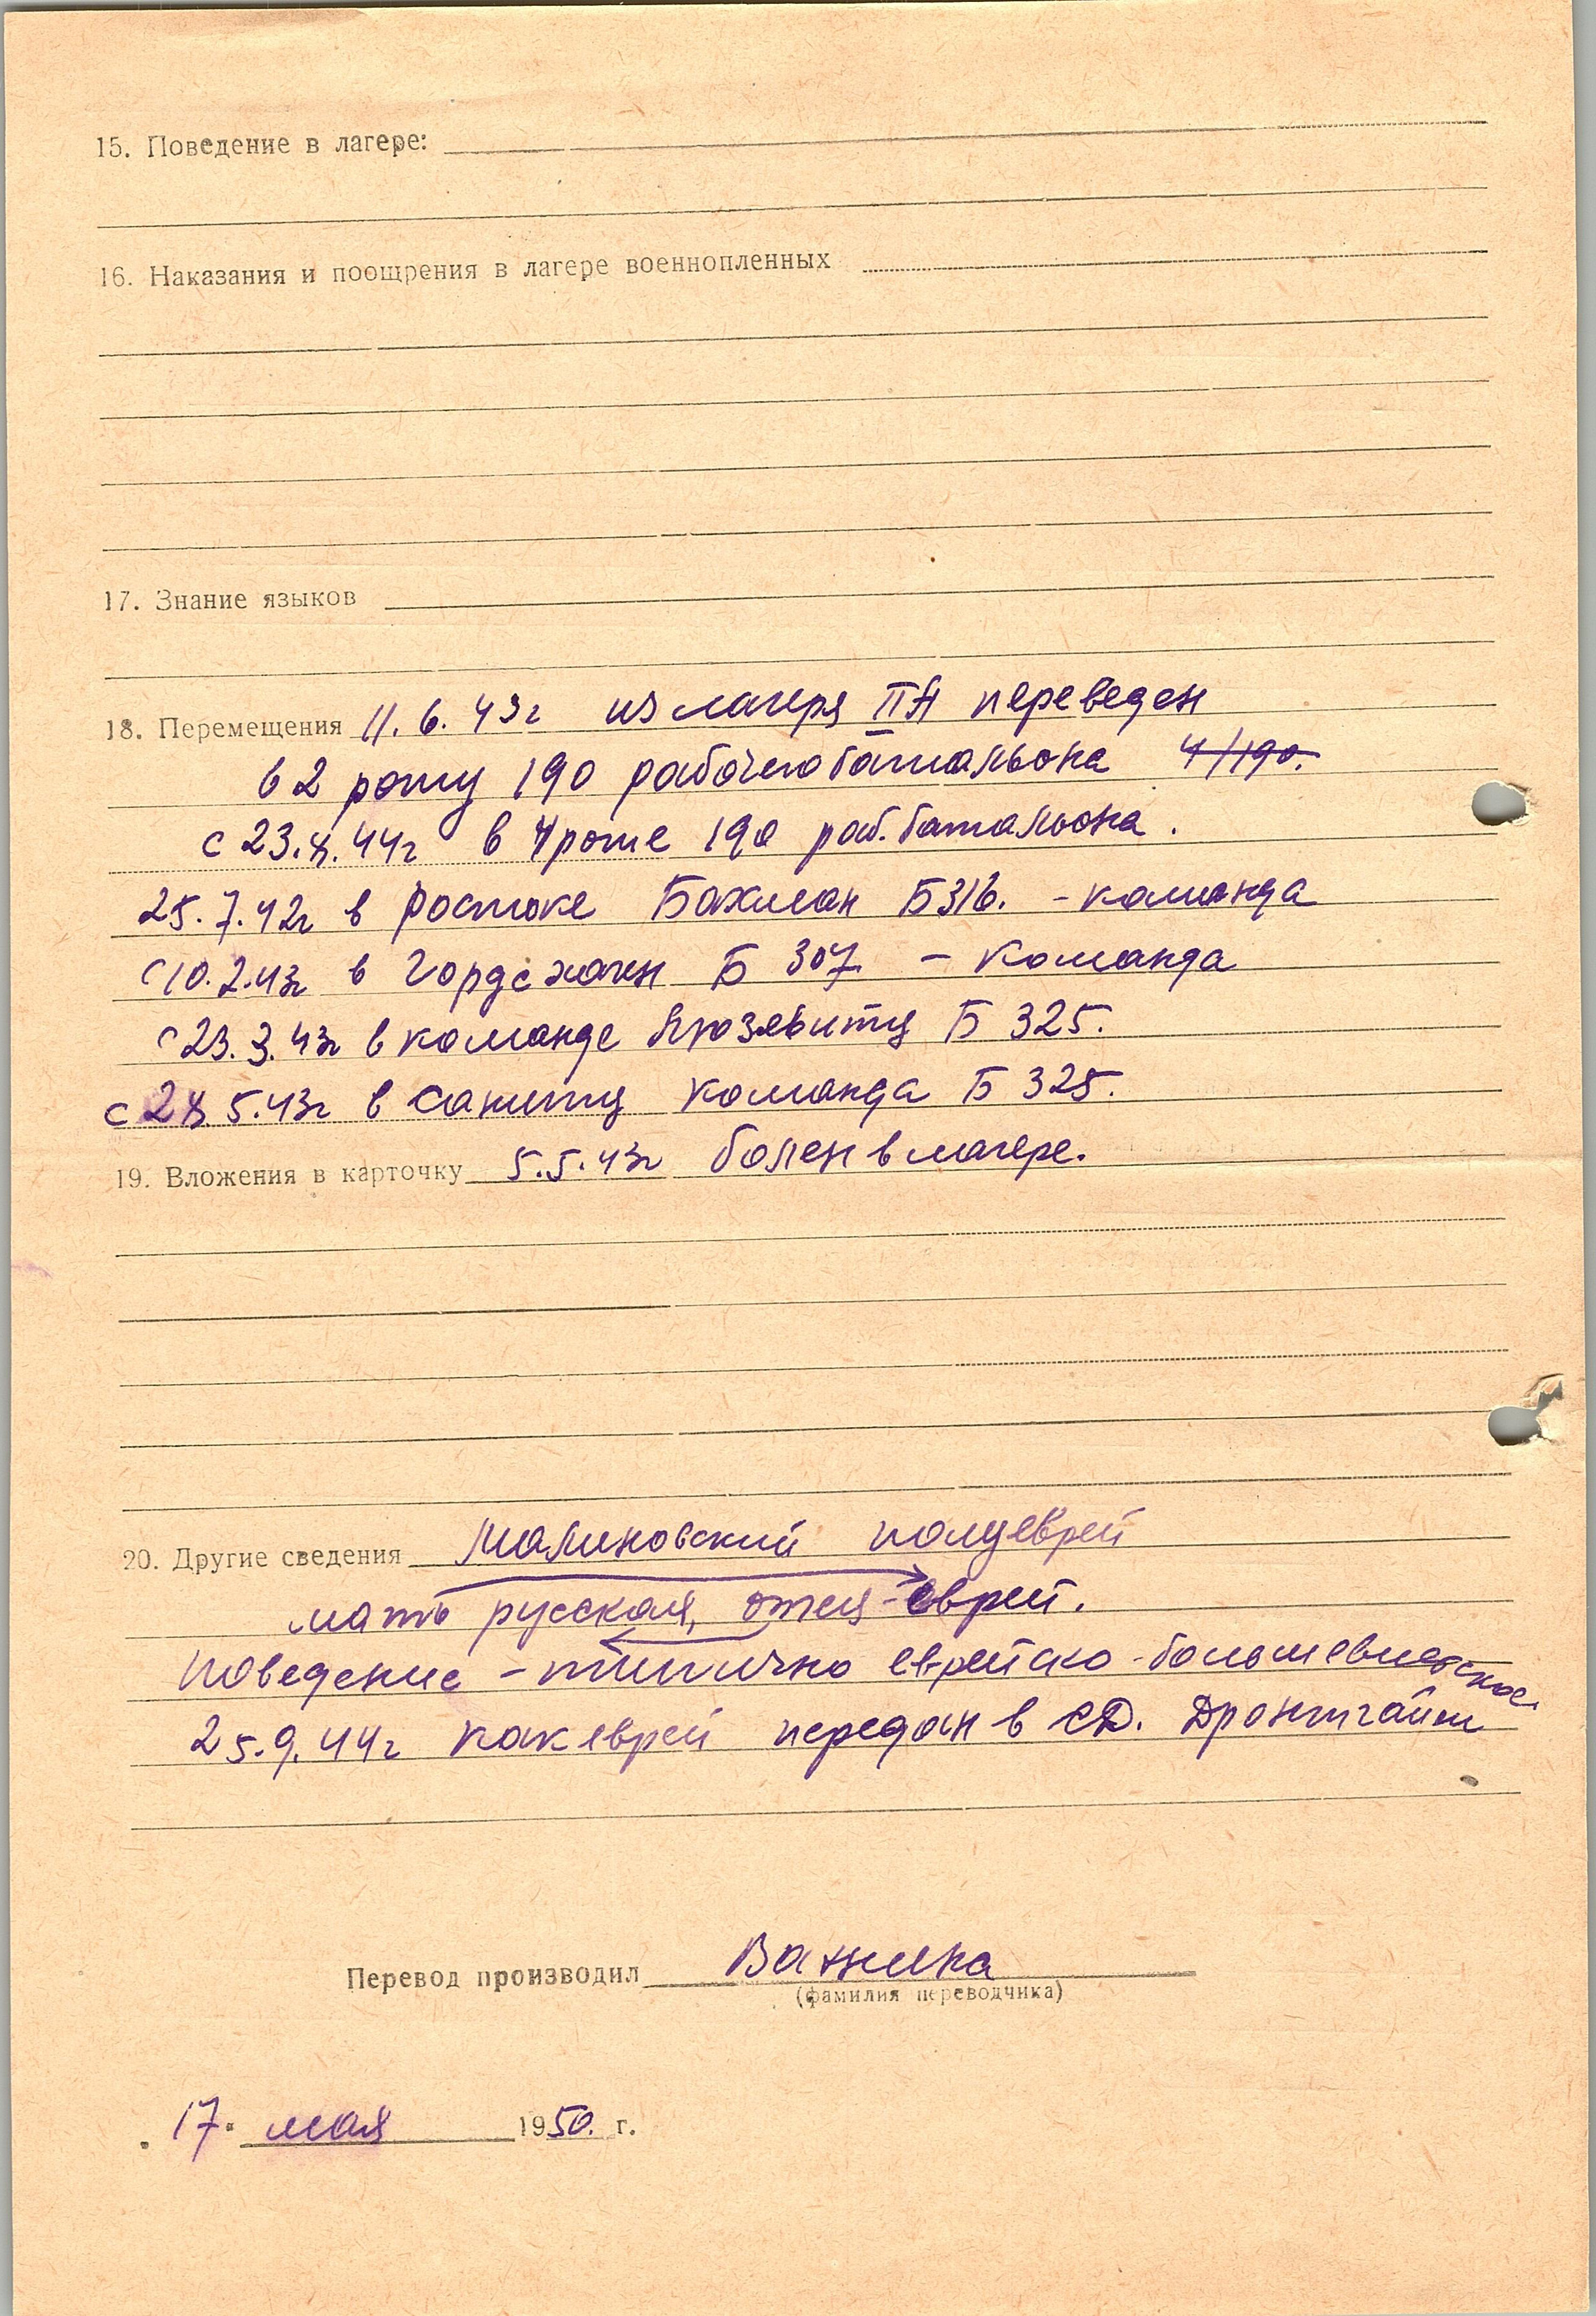 15. Поведение в лагере:
16. Наказания и поощрения в лагере военнопленных
17. Знание языков
18. Перемещения 11.6.43г из лагеря IIA переведен
в 2 роту 190 рабочего батальона 4/190.
с 23.4.44г в 4 роте 190 раб. батальона.
25.7.42г в Ростоке Бахман Б 316. - команда
с 10.2.43г в Гордсхаген Б 307 - команда
с 23.3.43г в команде Б 325.
5.43г в Саниту команда Б 325.
19. Вложения в карточку 5.5.43г болен в лагере.
20. Другие сведения Малиновский полуеврей
мать русская, отец - еврей.
Поведение - типично еврейско-большевистское
25.9.44г как еврей передан в СД. Дронтгайм
Перевод производил
(фамилия переводчика)
17. мая 1950. г.